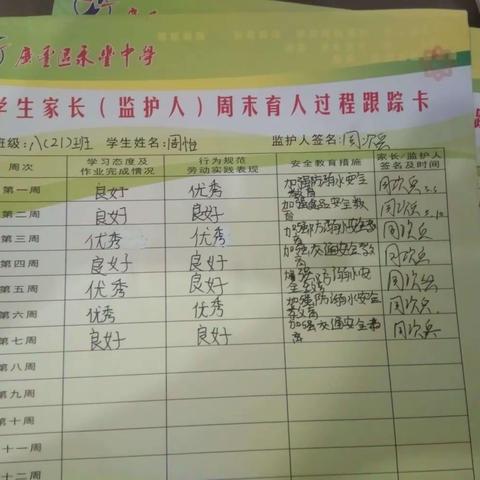 广丰区永丰中学
学生家长（监护人）周末育人过程跟踪卡
班级：八(21)班 学生姓名：周怡 监护人签名：周次兵
周次 学习态度及作业完成情况 行为规范劳动实践表现 安全教育措施 家长/监护人签名及时间
第一周 良好 优秀 加强防溺水安全教育 周次兵
第二周 良好 良好 加强食品安全教育 周次兵
第三周 优秀 优秀 加强防溺水安全教育 周次兵
第四周 良好 良好 加强交通安全教育 周次兵
第五周 优秀 优秀 防溺水安全 周次兵
第六周 优秀 优秀 加强防溺水安全教育 周次兵
第七周 良好 良好 加强交通安全教育 周次兵
第八周
第九周
第十周
十一周
十二周